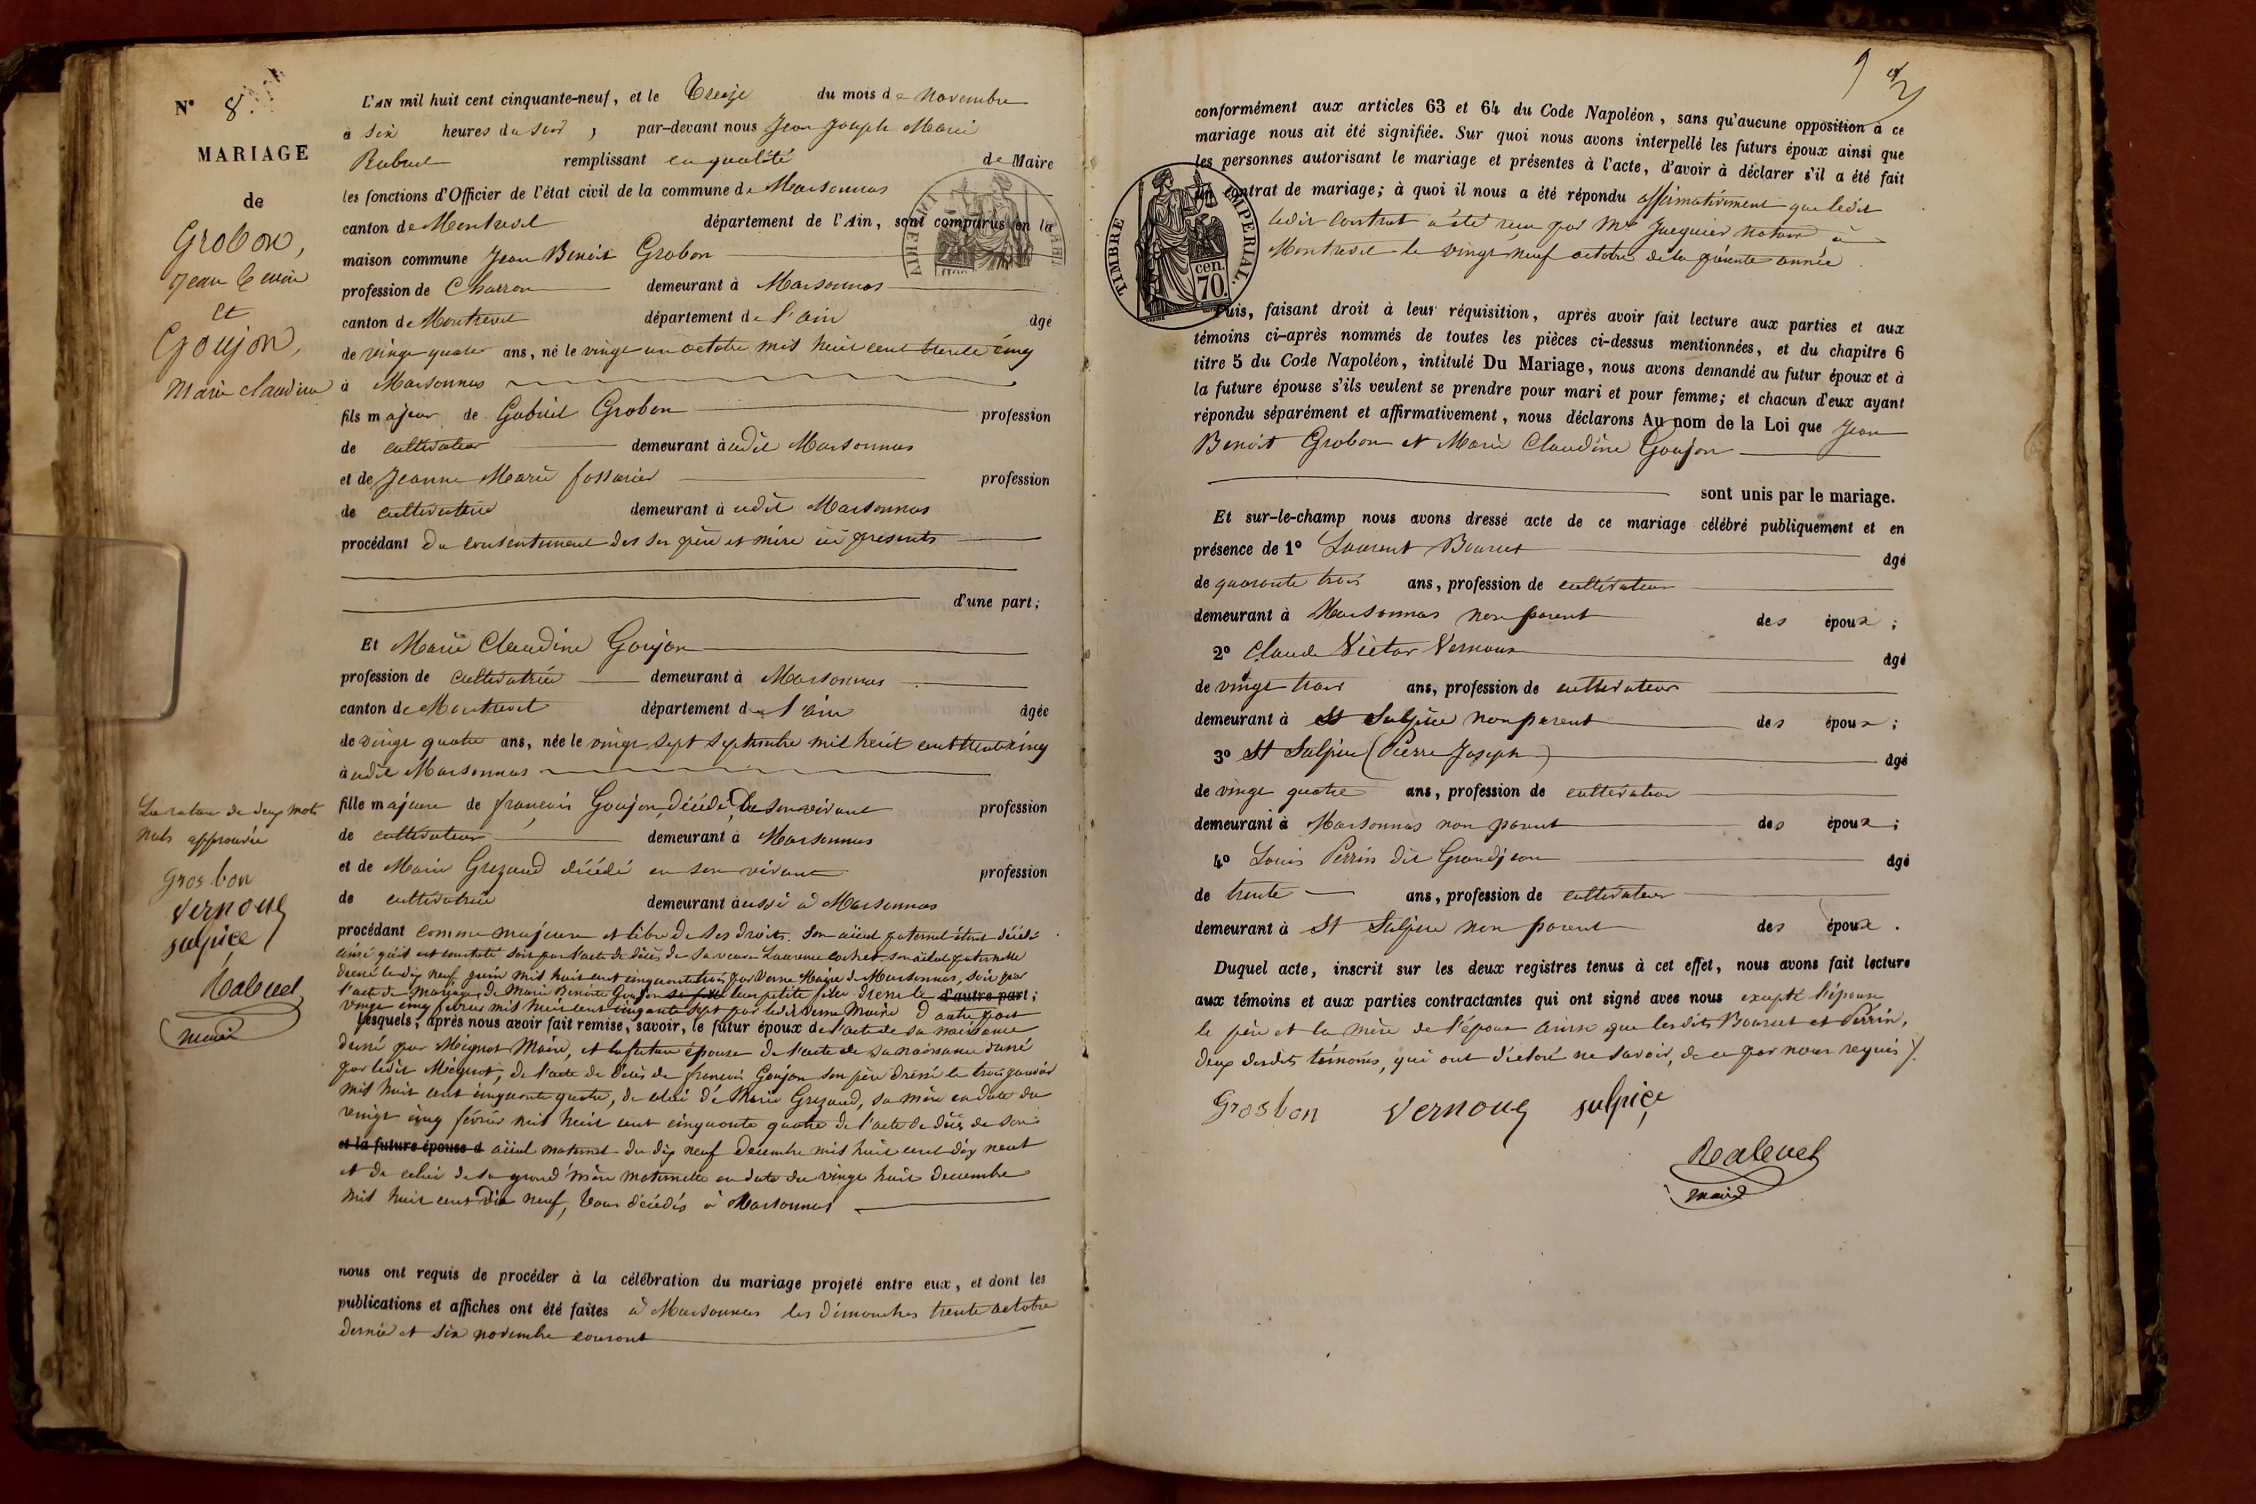 N° 8
MARIAGE
de
Grobon,
Jean Benoit
et
Goujon,
Marie Claudine
L'AN mil huit cent cinquante-neuf, et le Treize du mois de Novembre
à six heures du soir, par-devant nous Jean Joseph Marie
Rabuel remplissant en qualité de Maire
les fonctions d'Officier de l'état civil de la commune de Marsonnas
canton de Montrevel département de l'Ain, sont comparus en la
maison commune Jean Benoit Grobon
profession de Charron demeurant à Marsonnas
canton de Montrevel département de l'ain âgé
de vingt quatre ans, né le vingt un octobre mil huit cent trente cinq
à Marsonnas
fils majeur de Gabriel Grobon profession
de cultivateur demeurant à udit Marsonnas
et de Jeanne Marie profession
de cultivatrice demeurant à udit Marsonnas
procédant du consentement des ses père et mère ici présents
d'une part;
Et Marie Claudine Goujon
profession de cultivatrice demeurant à Marsonnas
canton de Montrevel département de l'ain âgée
de vingt quatre ans, née le vingt sept septembre mil huit cent trente cinq
à udit Marsonnas
La rature de deux mots
nuls approuvée
Grosbon
Vernoux
sulpice
Rabuel
maire
fille majeure de françois Goujon, décédé, de son vivant profession
de cultivateur demeurant à Marsonnas
et de Marie Grezaud décédé en son vivant profession
de cultivatrice demeurant aussi à Marsonnas
procédant comme majeure et libre de ses droits. Son aïeul paternel étant décédé
ainsi qu'il est constaté soit par l'acte de décès de sa veuve Laurence son aïeule paternelle
dressé le dix neuf juin mil huit cent cinquante trois par Verne Maire de Marsonnas, soit par
l'acte de mariage de Marie Benoite Goujon leur petite fille dressé le d'autre part;
vingt cinq février mil huit cent cinquante sept par ledit Verne Maire d'autre part
Lesquels, après nous avoir fait remise, savoir, le futur époux de l'acte de sa naissance
dressé par Mignot Maire, et la future épouse de l'acte de sa naissance dressé
par ledit Mignot, de l'acte de décès de françois Goujon son père dressé le trois janvier
mil huit cent cinquante quatre, de celui de Marie Grezaud, sa mère en date du
vingt cinq février mil huit cent cinquante quatre de l'acte de décès de son
et la future épouse d aïeul maternel du dix neuf décembre mil huit cent dix neuf
et de celui de sa grand'mère maternelle en date du vingt huit décembre
mil huit cent dix neuf, tous décédés à Marsonnas
nous ont requis de procéder à la célébration du mariage projeté entre eux, et dont les
publications et affiches ont été faites à Marsonnas les dimanches trente octobre
dernier et six novembre courant
conformément aux articles 63 et 64 du Code Napoléon, sans qu'aucune opposition à ce
mariage nous ait été signifiée. Sur quoi nous avons interpellé les futurs époux ainsi que
les personnes autorisant le mariage et présentes à l'acte, d'avoir à déclarer s'il a été fait
un contrat de mariage; à quoi il nous a été répondu affirmativement que ledit
ledit contrat a été reçu par Me Jacquier notaire à
Montrevel le vingt neuf octobre de la présente année
TIMBRE IMPERIAL.
cen.
70.
Puis, faisant droit à leur réquisition, après avoir fait lecture aux parties et aux
témoins ci-après nommés de toutes les pièces ci-dessus mentionnées, et du chapitre 6
titre 5 du Code Napoléon, intitulé Du Mariage, nous avons demandé au futur époux et à
la future épouse s'ils veulent se prendre pour mari et pour femme; et chacun d'eux ayant
répondu séparément et affirmativement, nous déclarons Au nom de la Loi que Jean
Benoit Grobon et Marie Claudine Goujon
sont unis par le mariage.
Et sur-le-champ nous avons dressé acte de ce mariage célébré publiquement et en
présence de 1° Laurent Bourcet âgé
de quarante trois ans, profession de cultivateur
demeurant à Marsonnas non parent des époux;
2° Claude Victor Vernoux âgé
de vingt trois ans, profession de cultivateur
demeurant à St Sulpice non parent des époux;
3° St Sulpice (Pierre Joseph) âgé
de vingt quatre ans, profession de cultivateur
demeurant à Marsonnas non parent des époux;
4° Louis Perrin dit Grandjean âgé
de trente ans, profession de cultivateur
demeurant à St Sulpice non parent des époux.
Duquel acte, inscrit sur les deux registres tenus à cet effet, nous avons fait lecture
aux témoins et aux parties contractantes qui ont signé avec nous excepté l'épouse
le père et la mère de l'époux ainsi que lesdits Bourcet et Perrin,
deux desdits témoins, qui ont déclaré ne savoir, de ce par nous requis
Grosbon Vernoux sulpice
Rabuel
maire